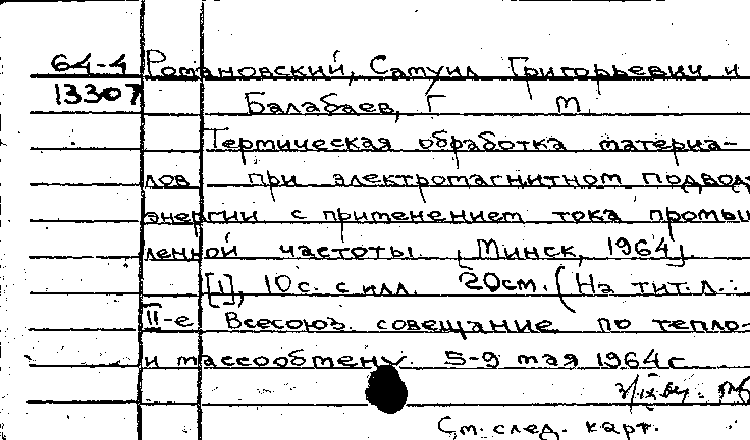 64-4 Романовский, Самуил Григорьевич и
13307 Балабаев, Г М.
Термическая обработка материа-
лов при электромагнитном подвод
энергии с применением тока промыш
ленной частоты. [Минск, 1964].
[1], 10 с. с илл. 20 см. (На тит. л.:
II-е Всесоюз. совещание по тепло-
и массообмену. 5-9 мая 1964 г
См. след. карт.